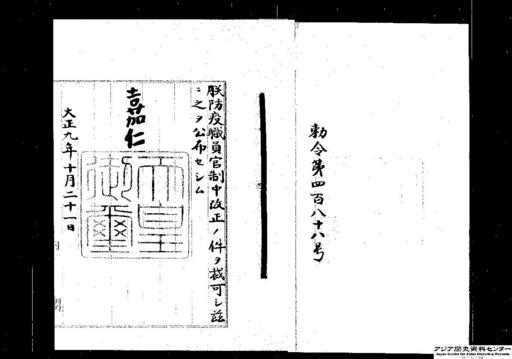 勅令第四百八十八号
朕防疫職員官制中改正ノ件ヲ裁可シ茲
ニ之ヲ公布セシム
嘉仁
天皇御璽
大正九年十月二十一日
アジア歴史資料センター
Japan Center for Asian Historical Records